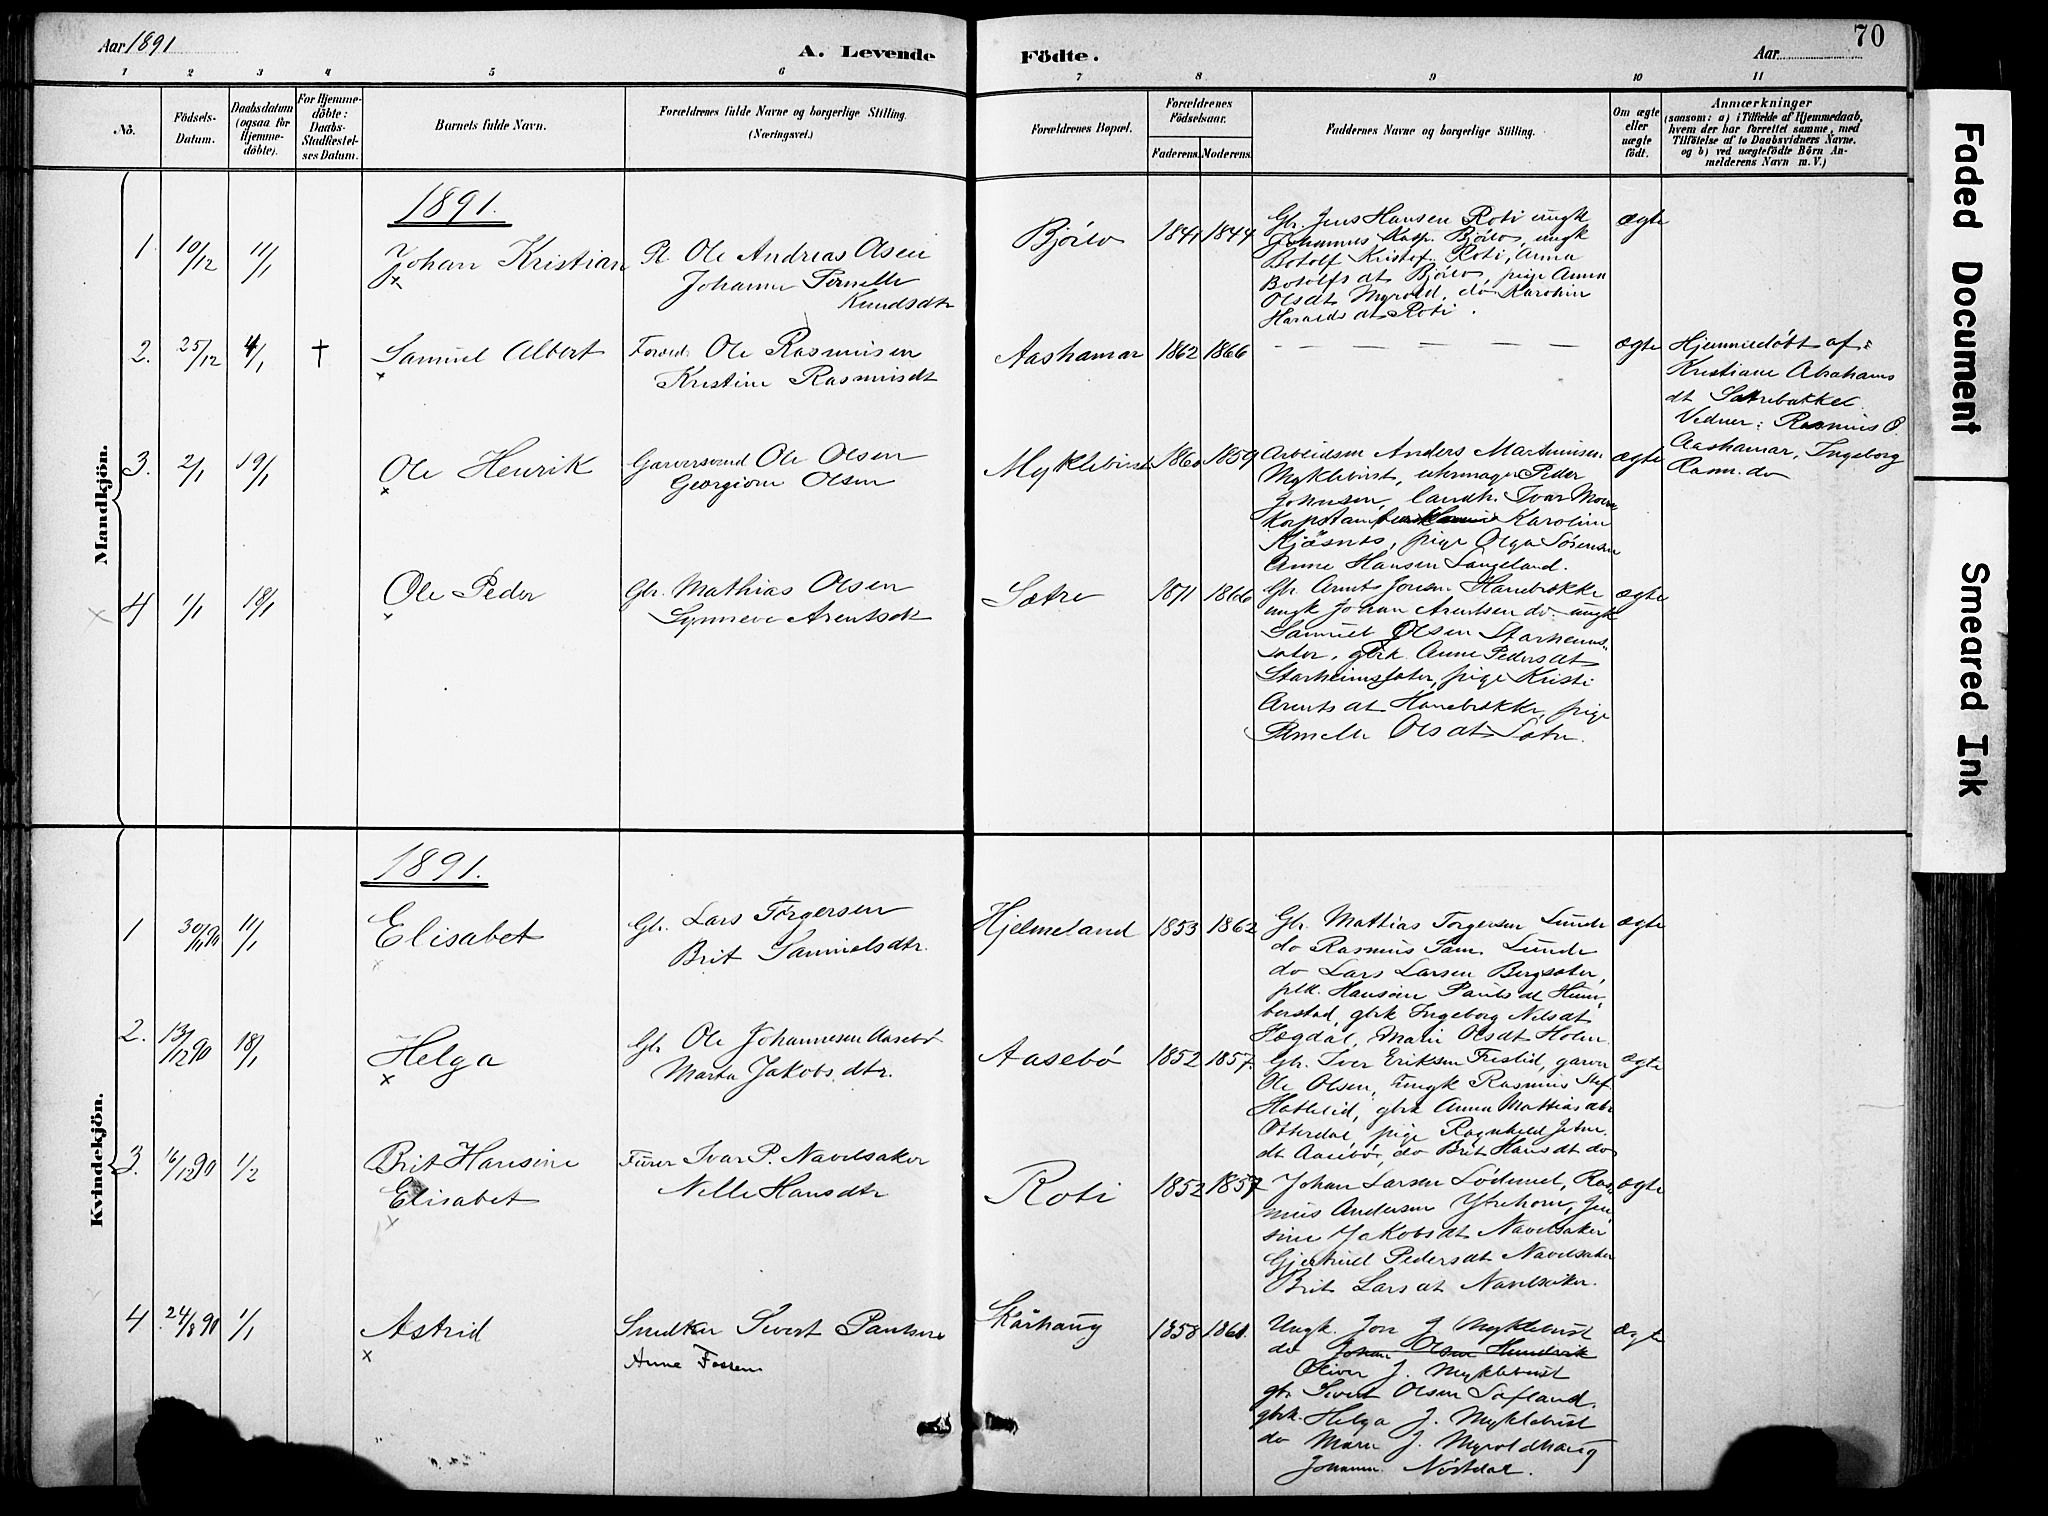 Aar 1891
A. Levende
Födte.
Aar
70
1 2 3 4 5 6 7 8 9 10 11
No.
Födsels-
Datum.
Daabsdatum
(ogsaa for
Hjemme-
döbte).
For Hjemme-
döbte:
Daabs-
Stadfæstel-
ses Datum.
Barnets fulde Navn.
Forældrenes fulde Navne og borgerlige Stilling.
(Næringsvei.)
Forældrenes Bopæl.
Forældrenes
Födselsaar.
Faderens. Moderens.
Faddernes Navne og borgerlige Stilling.
Om ægte
eller
uægte
födt.
Anmærkninger
(saasom: a) i Tilfælde af Hjemmedaab,
hvem der har forrettet samme, med
Tilföielse af to Daabsvidners Navne.
og b) ved uægtefödte Börn An-
melderens Navn m. V.)
Mandkjön.
1891.
1 10/12 11/1 Johan Kristian
Pl. Ole Andreas Olsen
Johanne Pernille
Knudsdtr
Bjørlo 1841 1844
Gbr. Jens Hansen Roti ungk
Johannes Kasp. Bjørlo, ungk
Botolf Kristof. Roti, Anna
Botolfsdt Bjørlo, pige Anna
Olsdt Myrold, do Karolin
Haraldsdt Roti.
ægte
2. 25/12 4/1 † Samuel Albert
Ole Rasmusen
Kristine Rasmusdt
Aashamar 1862 1866
— — — — — —
ægte
Hjemmedøbt af:
Kristiane Abrahams
dt Sætrebakke.
Vidner: Rasmus O.
Aashamar, Ingeborg
Rasm. do
3. 2/1 19/1 Ole Henrik
Garversvend Ole Olsen
Georgine Olsen
Myklebust 1860 1859
Arbeidsm Anders Martinusen
Myklebust, uhrmager Peder
Johnsen, landh. Ivar Moen
Karoline
Kjøsnes, pige Olga Sørensen
Anne Hansen Langeland.
ægte
4 1/1 18/1 Ole Peder
Gbr. Mathias Olsen
Synneve Arentsdt
Sætre 1871 1866
Gbr. Arnt Jonsen Hanebrekke
ungk Johan Arentsen do ungk
Samuel Olsen Starheims-
sæter, gbrk. Anne Pedersdt
Starheimssæter, pige Kristi
Arentsdt Hanebrekke, pige
Pernelle Olsdt Sætre.
ægte
Kvindekjön.
1891.
1 30/11 90 11/1 Elisabet
Gbr. Lars Torgersen
Brit Samuelsdtr.
Hjelmeland 1853 1862
Gbr. Mathias Torgersen Lunde
do Rasmus Sam. Lunde
do Lars Larsen Bergsæter,
plk. Hansine Paulsdt Hum-
berstad, gbrk Ingeborg Nilsdt
Hægdal, Marie Olsdt Holm
ægte
2. 13/12 90 18/1 Helga
Gbr Ole Johannesen Aasebø
Marta Jakobsdtr.
Aasebø 1852 1857.
Gbr. Iver Eriksen Fristid, garver
Ole Olsen, ungk Rasmus Stef
Hatlelid, gbrk Anna Mattiasdtr
Otterdal, pige Ragnhild
dt Aasebø, do Brit Hansdt do
ægte
3. 16/12 90 1/2 Brit Hansine
Elisabet
Furer Ivar P. Navelsaker
Nille Hansdtr
Roti 1852 1857
Johan Larsen Lødemel, Ras-
mus Andersen Ytrehorn, Jen-
sine Jakobsdt Navelsaker
Gjertrud Pedersdt Navelsaker
Brit Larsdt Navelsaker.
ægte
4 24/8 90 1/1 Astrid
Snedker Sivert Paulsen
Anne Fossen
Skårhaug 1858 1861.
Ungk. Jon J Myklebust
do Johan Olsen Hundvik
Oliver J. Myklebust
gbr Sivert Olsen Sæfland.
gbrk. Helga J. Myklebust
do Marie J. Myroldhaug
Johanne Nøstdal.
ægte
Faded Document
Smeared Ink